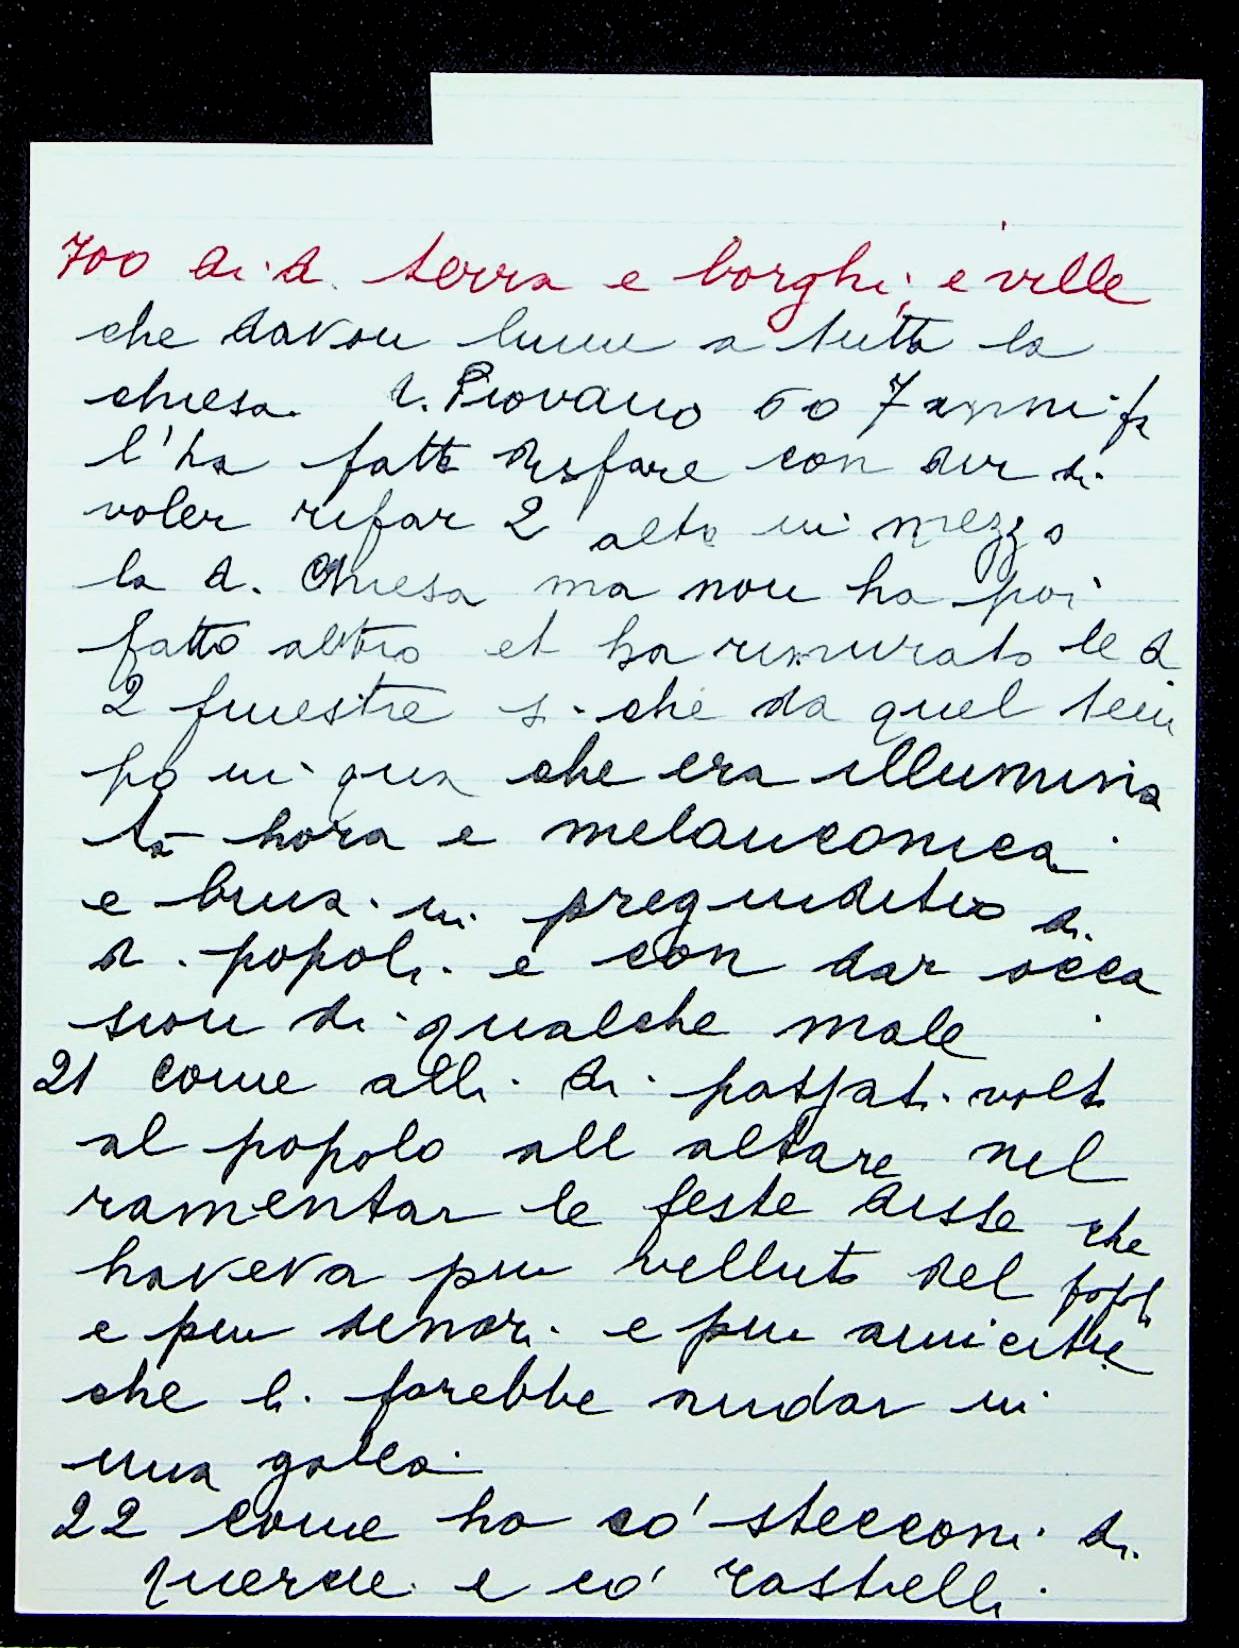 700 di d. terra e borghi, e ville
che davon lume a tutta la
chiesa. d. Piovano 6 o 7 anni fa
l'ha fatte disfare con dir di
voler rifar 2 alte in mezzo
la d. Chiesa ma non ha poi
fatto altro et ha rimurato le d
2 finestre si che da quel tem
po in qua che era illumina
ta hora e melanconica
e buia in pregiuditio di
d. popoli e con dar occa
sion di qualche male
21 come alli di passati volt
al popolo all altare nel
ramentar le feste disse che
haveva piu velluto del popol
e piu denari e piu amicitie
che li farebbe andar in
una galea
22 come ha co' stecconi di
querce e co' rastelli